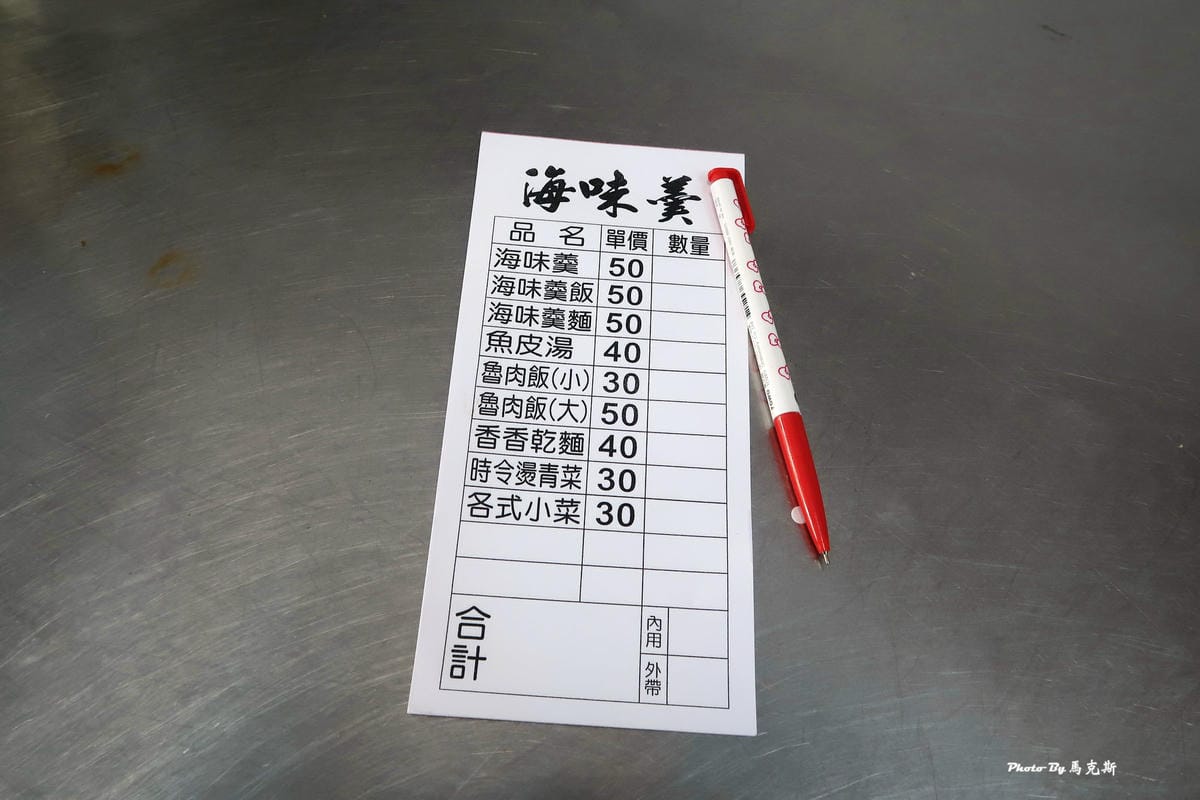 海味羹
品名 單價 數量
海味羹 50
海味羹飯 50
海味羹麵 50
魚皮湯 40
魯肉飯(小) 30
魯肉飯(大) 50
香香乾麵 40
時令燙青菜 30
各式小菜 30
合計
內用
外帶
Photo By 馬克斯